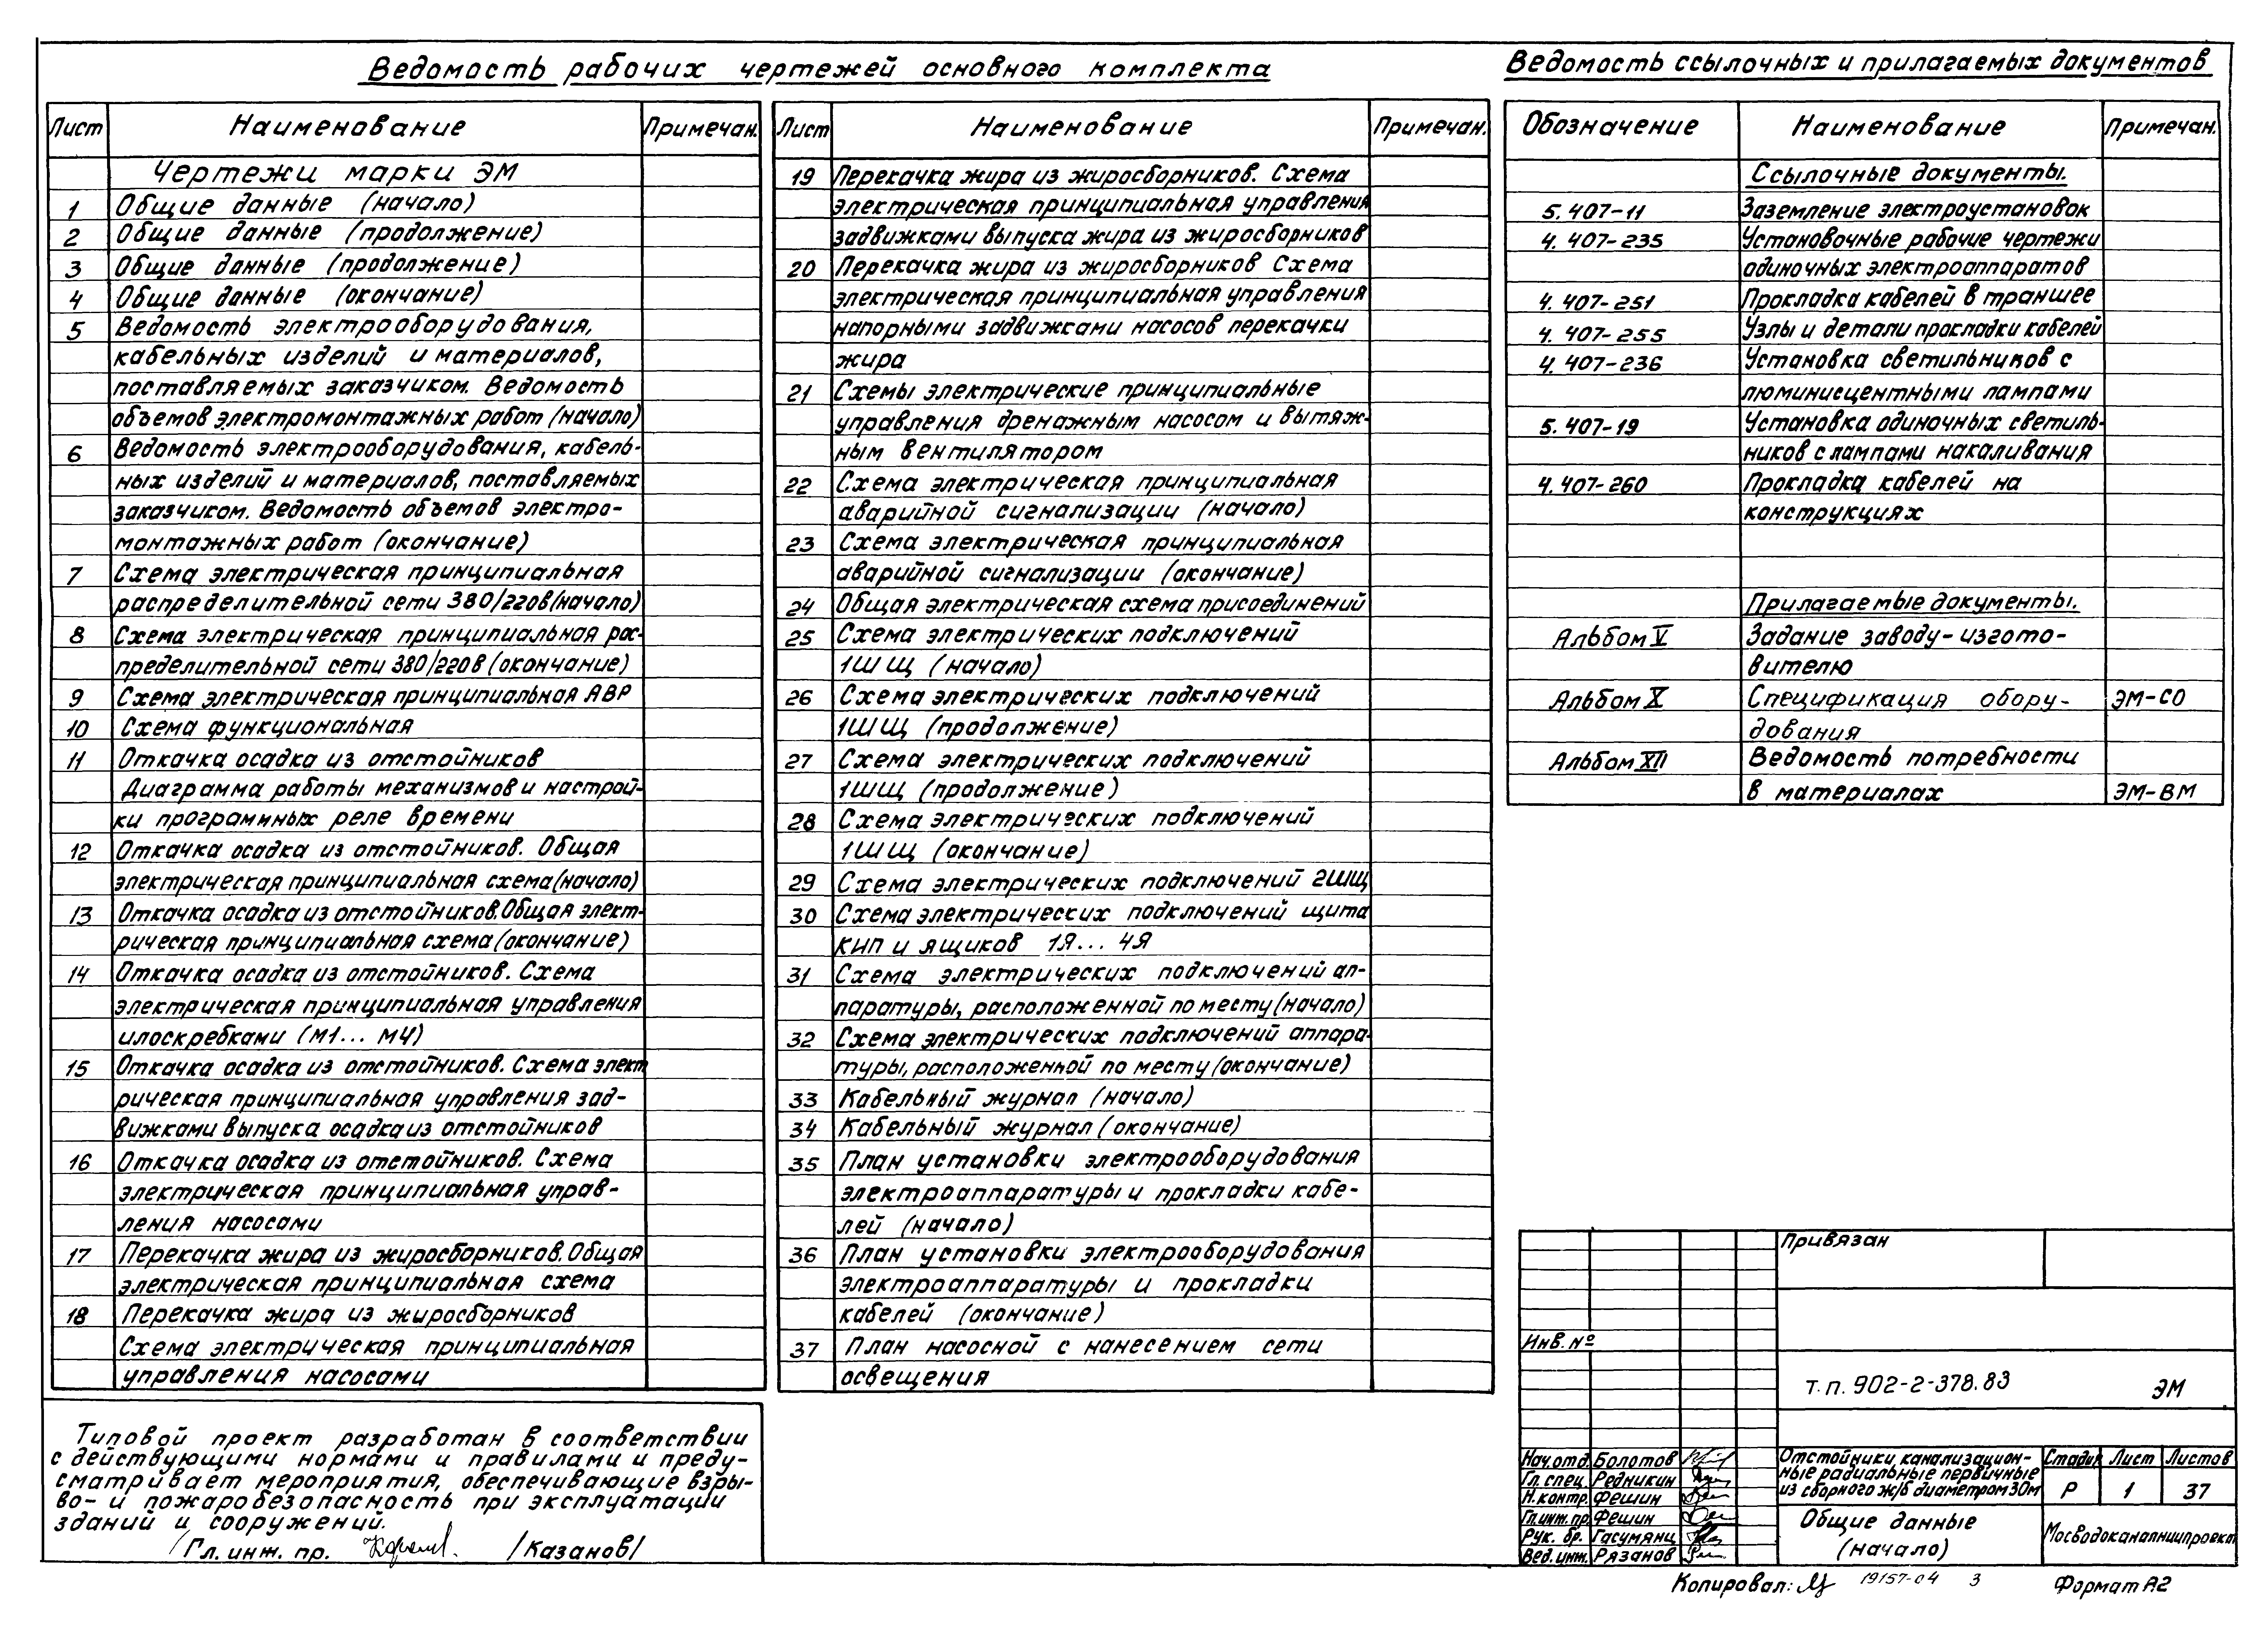 Ведомость рабочих чертежей основного комплекта
Лист Наименование Примечан.
Чертежи марки ЭМ
1 Общие данные (начало)
2 Общие данные (продолжение)
3 Общие данные (продолжение)
4 Общие данные (окончание)
5 Ведомость электрооборудования,
кабельных изделий и материалов,
поставляемых заказчиком. Ведомость
объемов электромонтажных работ (начало)
6 Ведомость электрооборудования, кабель-
ных изделий и материалов, поставляемых
заказчиком. Ведомость объемов электро-
монтажных работ (окончание)
7 Схема электрическая принципиальная
распределительной сети 380/220в (начало)
8 Схема электрическая принципиальная рас-
пределительной сети 380/220в (окончание)
9 Схема электрическая принципиальная АВР
10 Схема функциональная
11 Откачка осадка из отстойников
Диаграмма работы механизмов и настрой-
ки програмных реле времени
12 Откачка осадка из отстойников. Общая
электрическая принципиальная схема (начало)
13 Откачка осадка из отстойников. Общая элект-
рическая принципиальная схема (окончание)
14 Откачка осадка из отстойников. Схема
электрическая принципиальная управления
илоскребками (М1... М4)
15 Откачка осадка из отстойников. Схема элект
рическая принципиальная управления зад-
вижками выпуска осадка из отстойников
16 Откачка осадка из отстойников. Схема
электрическая принципиальная управ-
ления насосами
17 Перекачка жира из жиросборников. Общая
электрическая принципиальная схема
18 Перекачка жира из жиросборников
Схема электрическая принципиальная
управления насосами
Лист Наименование Примечан.
19 Перекачка жира из жиросборников. Схема
электрическая принципиальная управления
задвижками выпуска жира из жиросборников
20 Перекачка жира из жиросборников Схема
электрическая принципиальная управления
напорными задвижками насосов перекачки
жира
21 Схемы электрические принципиальные
управления дренажным насосом и вытяж-
ным вентилятором
22 Схема электрическая принципиальная
аварийной сигнализации (начало)
23 Схема электрическая принципиальная
аварийной сигнализации (окончание)
24 Общая электрическая схема присоединений
25 Схема электрических подключений
1ШЩ (начало)
26 Схема электрических подключений
1ШЩ (продолжение)
27 Схема электрических подключений
1ШЩ (продолжение)
28 Схема электрических подключений
1ШЩ (окончание)
29 Схема электрических подключений 2ШЩ
30 Схема электрических подключений щита
КИП и ящиков 1Я... 4Я
31 Схема электрических подключений ап-
паратуры, расположенной по месту (начало)
32 Схема электрических подключений аппара-
туры, расположенной по месту (окончание)
33 Кабельный журнал (начало)
34 Кабельный журнал (окончание)
35 План установки электрооборудования
электроаппаратуры и прокладки кабе-
лей (начало)
36 План установки электрооборудования
электроаппаратуры и прокладки
кабелей (окончание)
37 План насосной с нанесением сети
освещения
Ведомость ссылочных и прилагаемых документов
Обозначение Наименование Примечан.
Ссылочные документы.
5. 407-11 Заземление электроустановок
4. 407-235 Установочные рабочие чертежи
одиночных электроаппаратов
4. 407-251 Прокладка кабелей в траншее
4. 407-255 Узлы и детали прокладки кабелей
4. 407-236 Установка светильников с
люминисцентными лампами
5. 407-19 Установка одиночных светиль-
ников с лампами накаливания
4. 407-260 Прокладка кабелей на
конструкциях
Прилагаемые документы.
Альбом V Задание заводу-изгото-
вителю
Альбом X Спецификация обору-
дования ЭМ-СО
Альбом XII Ведомость потребности
в материалах ЭМ-ВМ
Типовой проект разработан в соответствии
с действующими нормами и правилами и преду-
сматривает мероприятия, обеспечивающие взры-
во- и пожаробезопасность при эксплуатации
зданий и сооружений.
Гл. инж. пр. /Казанов/
Привязан
Инв. №
т.п. 902-2-378.83 ЭМ
Нач.отд. Болотов
Гл. спец. Редникин
Н.контр. Фешин
Гл.инж.пр. Фешин
Рук. бр. Гасумянц
Вед.инж. Рязанов
Отстойники канализацион-
ные радиальные первичные
из сборного ж/б диаметром 30м
Стадия Лист Листов
Р 1 37
Общие данные
(начало)
Мосводоканалниипроект
Копировал: 19157-04 3 Формат А2